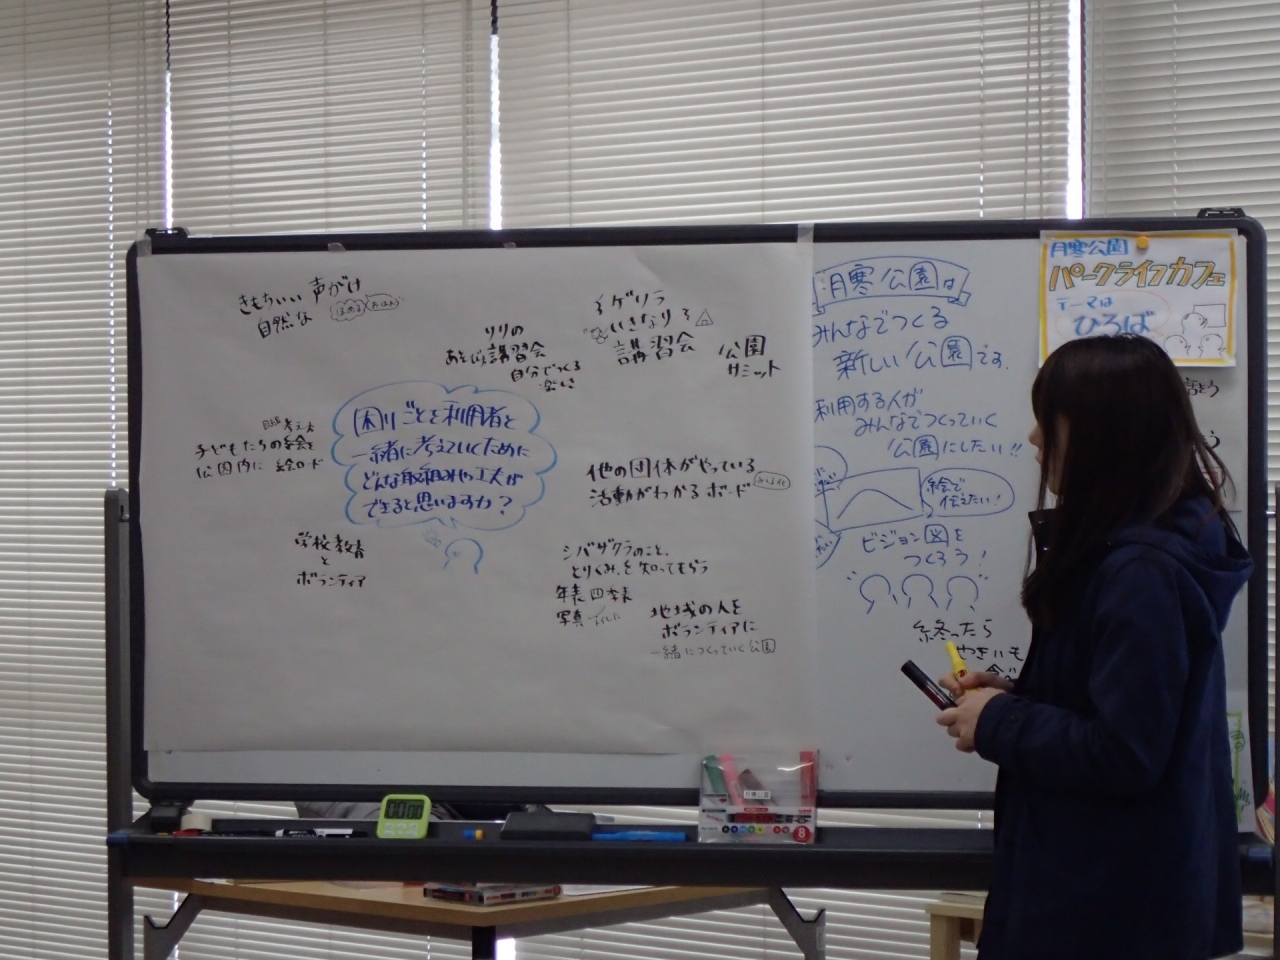 きもちいい 声がけ
自然な
ほめる
おはよう
リリの
あそびば講習会
自分でつくる
楽しさ
イゲリラ
いきなり
講習会
公園
サミット
困りごとを利用者と
一緒に考えていくために
どんな取組みや工夫が
できると思いますか?
子どもたちの絵を
公園内に 絵ロード
他の団体がやっている
活動がわかるボード
みえる化
学校教育
と
ボランティア
シバザクラのこと、
とりくみ、を知ってもらう
年表 四季表
写真
地域の人を
ボランティアに
一緒につくっていく公園
月寒公園は
みんなでつくる
新しい公園です。
利用する人が
みんなでつくっていく
公園にしたい!!
絵で
伝えたい!
ビジョン図を
つくろう!
終ったら
やきいも
月寒公園
パークライフカフェ
テーマは
ひろば
月寒公園
8